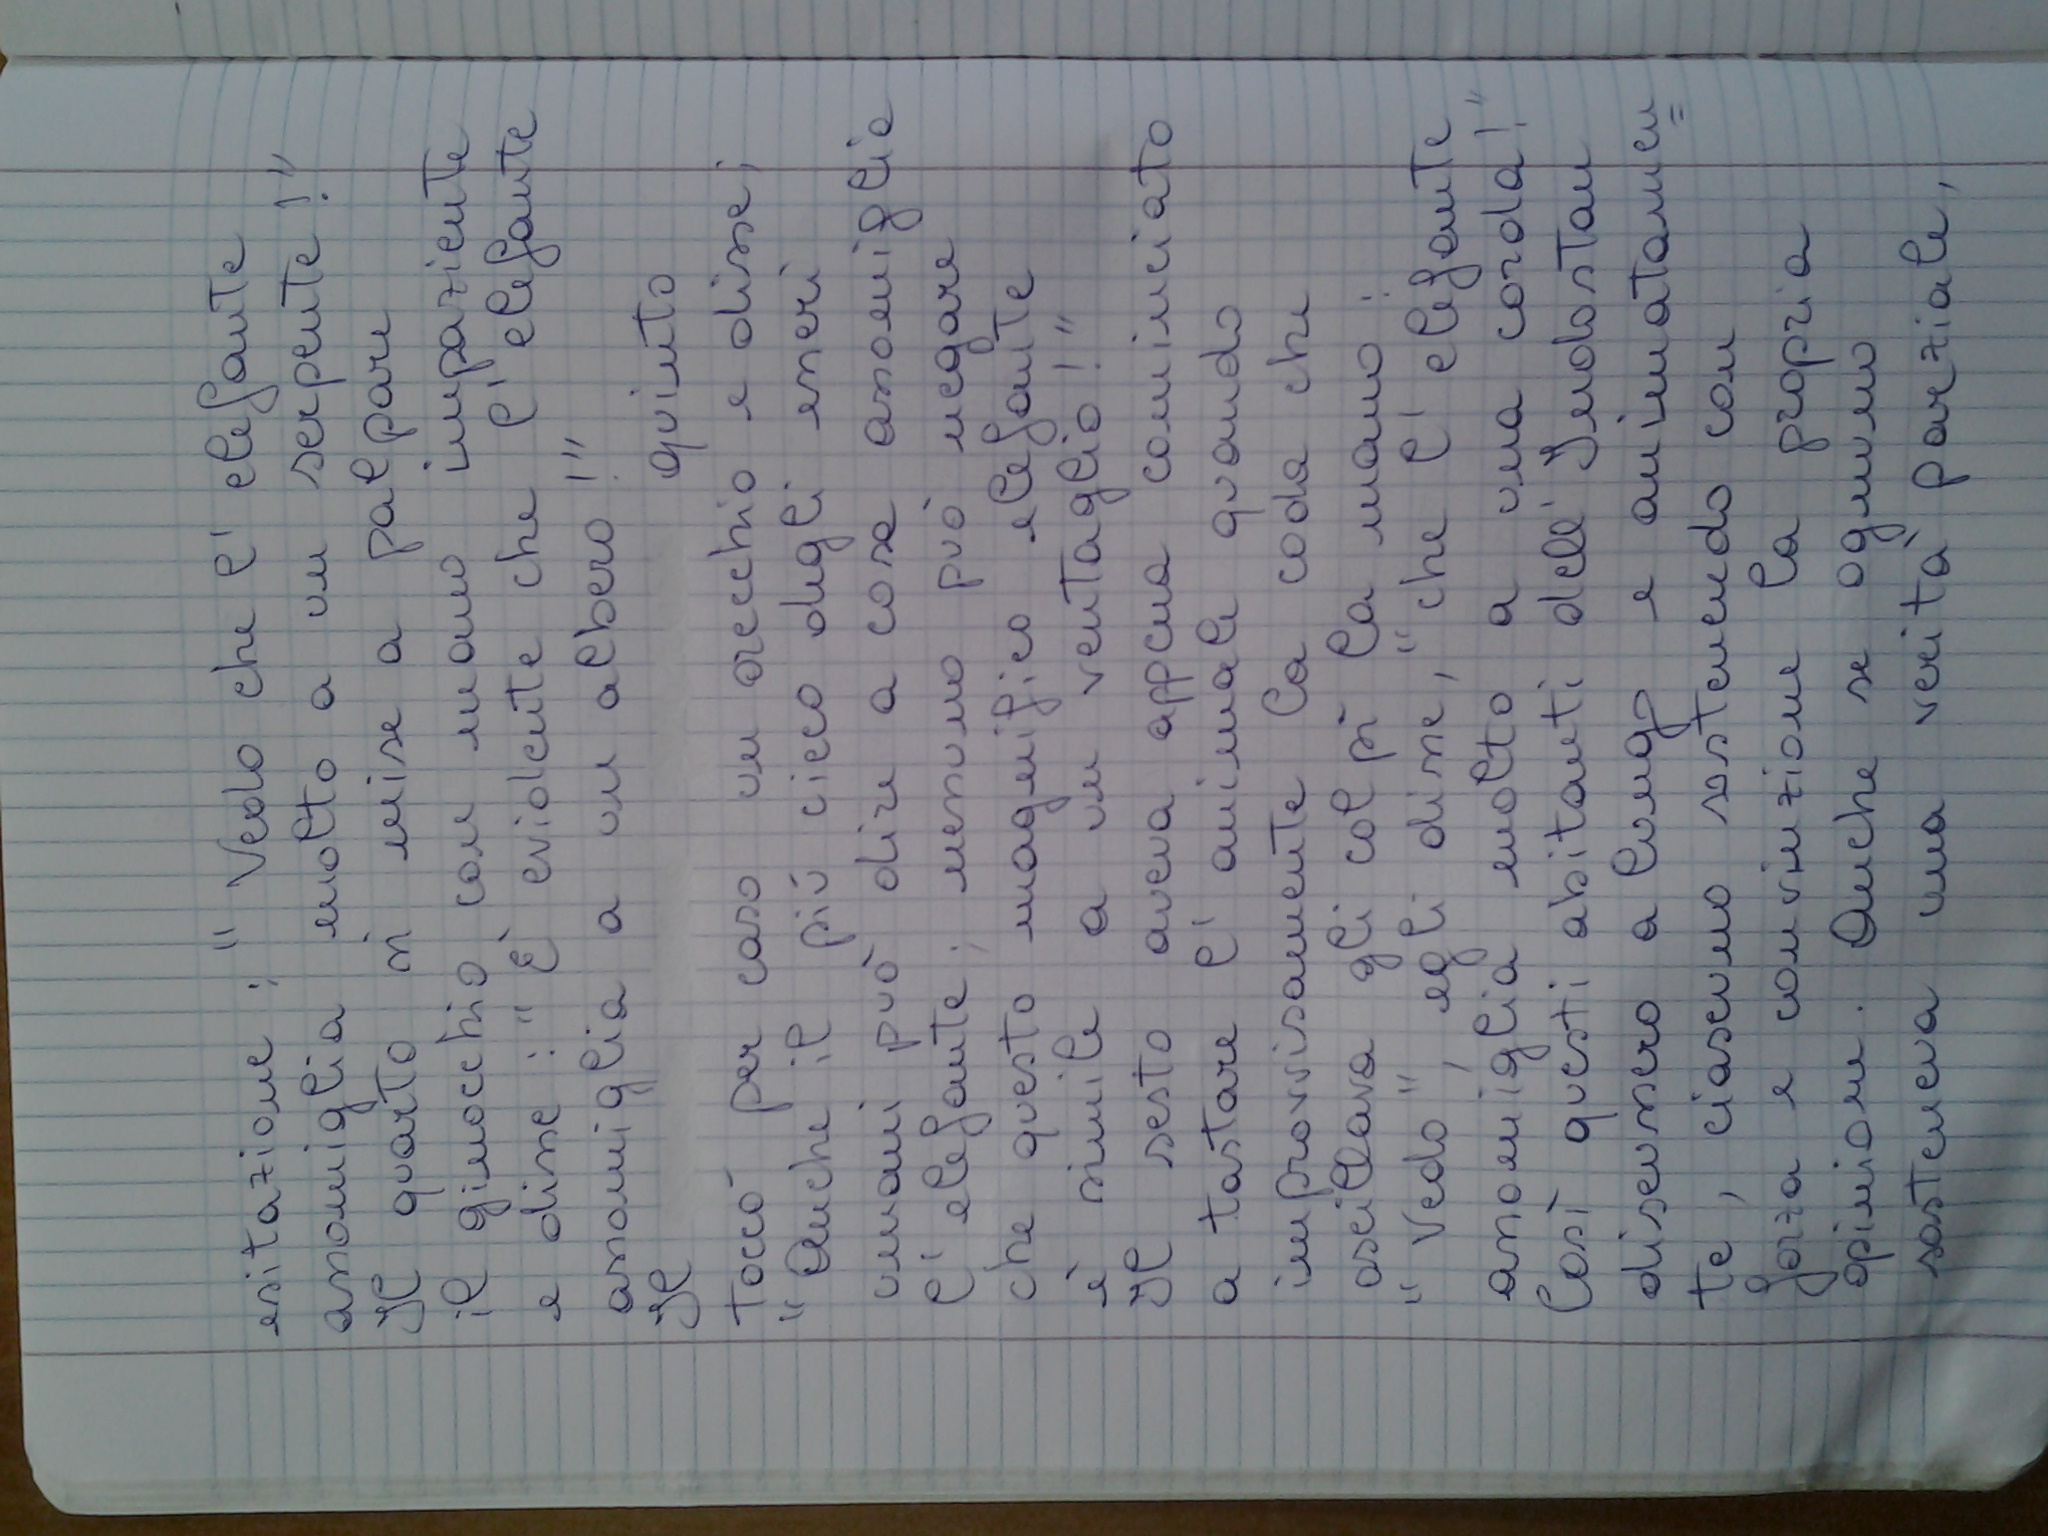 esitazione: "Vedo che l'elefante
assomiglia molto a un serpente!"
Il quarto si mise a palpare
il ginocchio con mano impaziente
e disse: "È evidente che l'elefante
assomiglia a un albero!"
Il quinto
toccò per caso un orecchio e disse;
"Anche il più cieco degli esseri
umani può dire a cosa assomiglia
l'elefante; nessuno può negare
che questo magnifico elefante
è simile a un ventaglio!"
Il sesto aveva appena cominciato
a tastare l'animale quando
improvvisamente la coda che
oscillava gli colpì la mano:
"Vedo", egli disse, "che l'elefante
assomiglia molto a una corda!"
Così questi abitanti dell'Indostan
discussero a lungo e animatamen=
te, ciascuno sostenendo con
forza e convinzione la propria
opinione. Anche se ognuno
sosteneva una verità parziale,